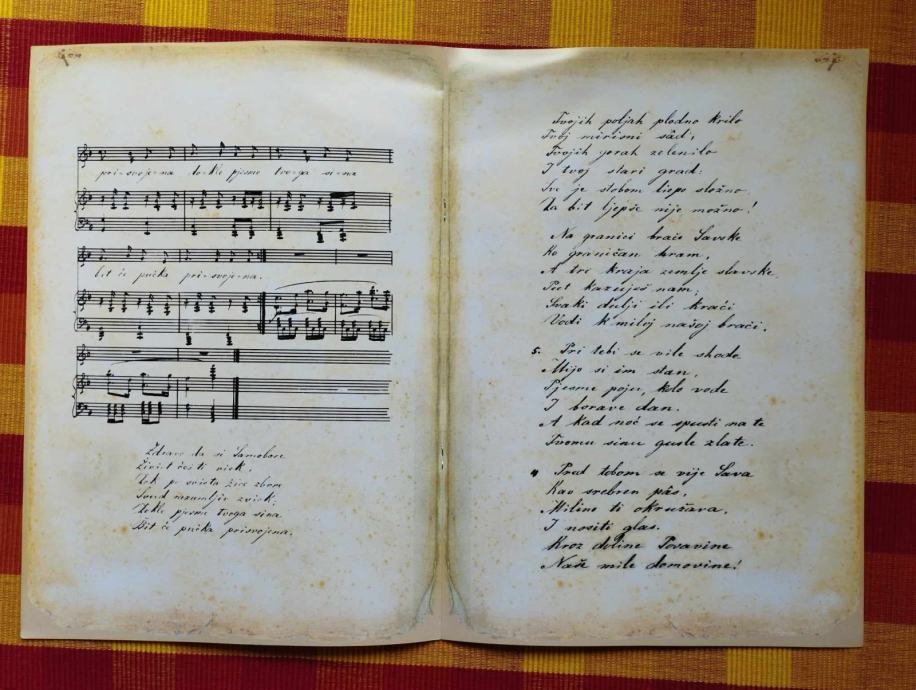 pri-svoje-na dokle pjesme tvo-ga si-na
bit će pučka pri-svoje-na.
Zdravo da si Samobore
Živit ćeš ti viek,
Dok po svietu žice zbore
Svud razumljiv zviek,
Dokle pjesma tvoga sina
Bit će pučka prisvojena.
Tvojih poljah plodno krilo
Tvoj mirisni sâd,
Tvojih gorah zelenilo
I tvoj stari grad:
Sve je stobom liepo složno
Da bit ljepše nije možno!
Na granici braće Savske
Ko graničan hram,
A tri kraja zemlje slavske
Put kazuješ nam;
Svaki dulji ili kraći
Vodi k miloj našoj braći.
5. Pri tebi se vile shode
Mijo si im stan,
Pjesme poju, kolo vode
I borave dan.
A kad noć se spusti na te
Tvomu sinu gusle zlate.
4 Pred tobom se vije Sava
Kao srebren pâs,
Milino ti okružava,
I nositi glas.
Kroz doline Posavine
Naše mile domovine!